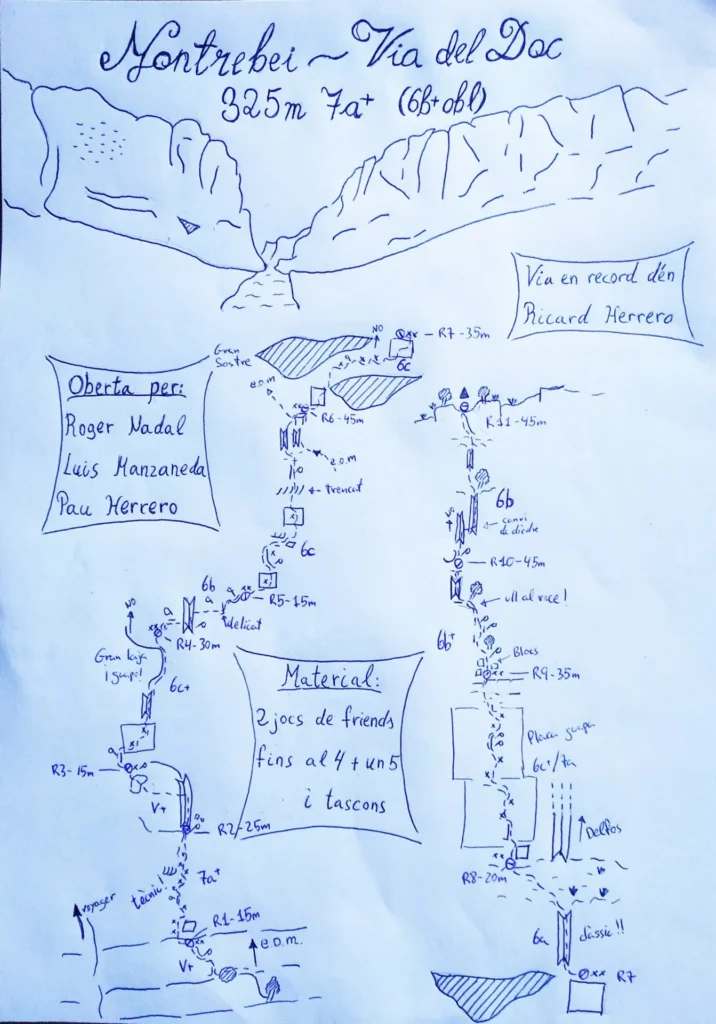 Montrebei ~ Via del Doc
325m 7a+ (6b+ obl)
Via en record d'en
Ricard Herrero
Oberta per:
Roger Nadal
Luis Manzaneda
Pau Herrero
Gran
Sostre
e.o.m
NO
R7-35m
6c
R6-45m
e.o.m
trencat
6c
R5-15m
6b
a
a
delicat
R4-30m
NO
a
Gran llaja
i guapa!
6c+
a
R3-15m
V+
R2-25m
7a+
tècnic!
R1-15m
Voyager
e.o.m.
V+
Material:
2 jocs de friends
fins al 4 + un 5
i tascons
R11-45m
6b
canvi
de diedre
NO
R10-45m
ull al roce!
6b+
Blocs
R9-35m
Placa guapa
6c+/7a
Delfos
R8-20m
6a
clàssic!!
R7